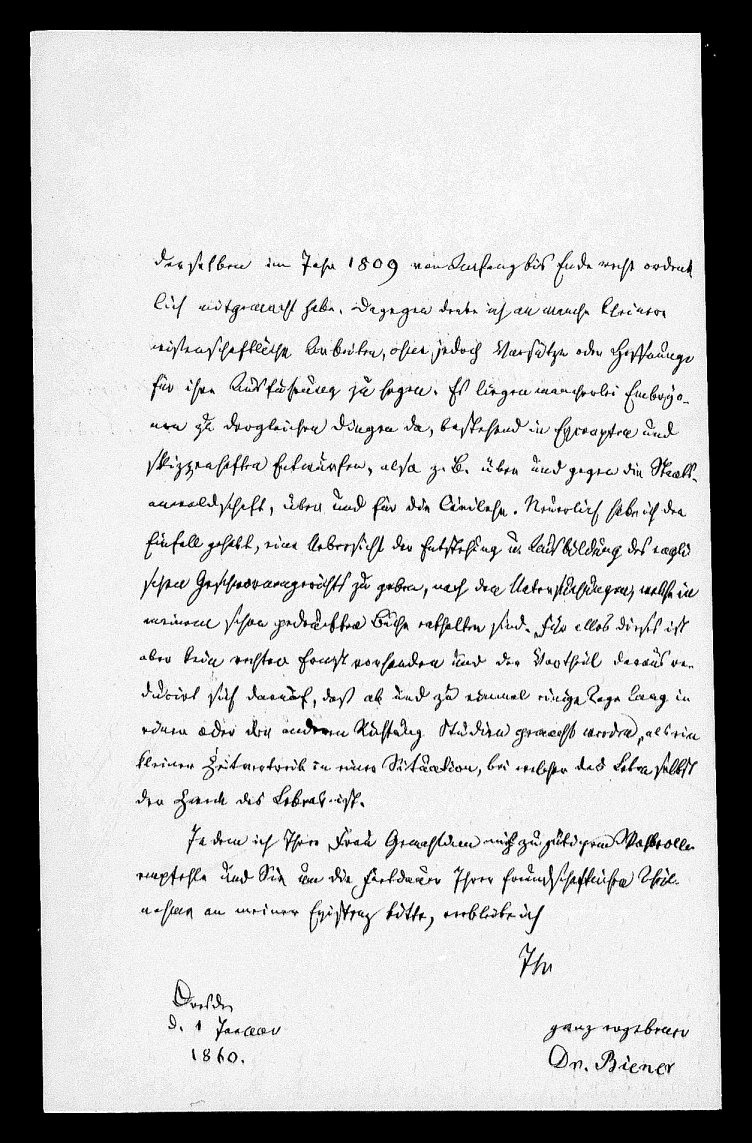 derselben im Jahr 1809 von Anfang bis Ende recht ordent
lich mitgemacht habe. Dagegen denke ich an manche kleinere
wissenschaftliche Arbeiten, ohne jedoch Vorsätze oder Hoffnunge
für ihre Ausführung zu hegen. Es liegen mancherlei Embryo-
nen zu dergleichen Dingen da, bestehend in Excerpten und
skizzenhaften Entwürfen, also z. B. über und gegen die Staats-
anwaldschaft, über und für die Civilehe. Neuerlich habe ich den
Einfall gehabt, eine Uebersicht der Entstehung u. Ausbildung des engli
schen Geschwornengerichts zu geben, nach den Untersuchungen, welche in
meinem schon gedruckten Buche enthalten sind. Für alles dieses ist
aber kein rechter Ernst vorhanden und der Vortheil daraus re
ducirt sich darauf, daß ab und zu einmal einige Tage lang in
einer oder der anderen Richtung Studien gemacht werden, als ein
kleiner Zeitvertreib in einer Situation, bei welcher das Leben selbst
der Zweck des Lebens ist.
Indem ich Ihrer Frau Gemahlin mich zu gütigem Wohlwollen
empfehle und Sie um die Fortdauer Ihrer freundschaftlichen Theil-
nahme an meiner Existenz bitte, verbleibe ich
Ihr
Dresden
d. 1 Januar
1860.
ganz ergebener
Dr. Biener